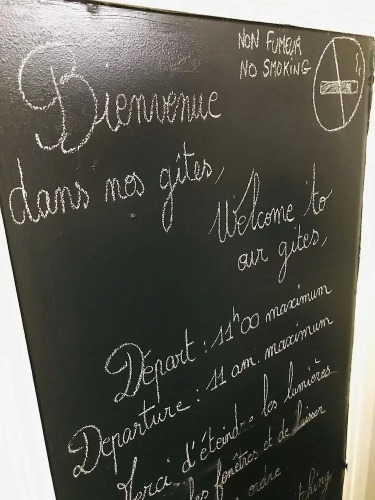 NON FUMEUR
NO SMOKING
Bienvenue
dans nos gîtes,
Welcome to
our gites,
Départ : 11h00 maximum
Departure : 11 am. maximum
Merci d'éteindre les lumières
les fenêtres et de laisser
ordre